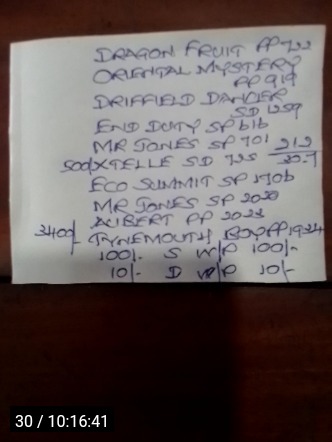 DRAGON FRUIT PP 722
ORIENTAL MYSTERY
PP 919
DRIFFIELD DANCER
SD 1259
END DUTY SP 616
MR JONES SP 701 212
500/XTELLE SD 725 20.7
ECO SUMMIT SP 1706
MR JONES SP 2020
AUBERT PP 2023
3400/- TYNEMOUTH BOY PP 1924
100/- S W/P 100/-
10/- D W/P 10/-
30 / 10:16:41